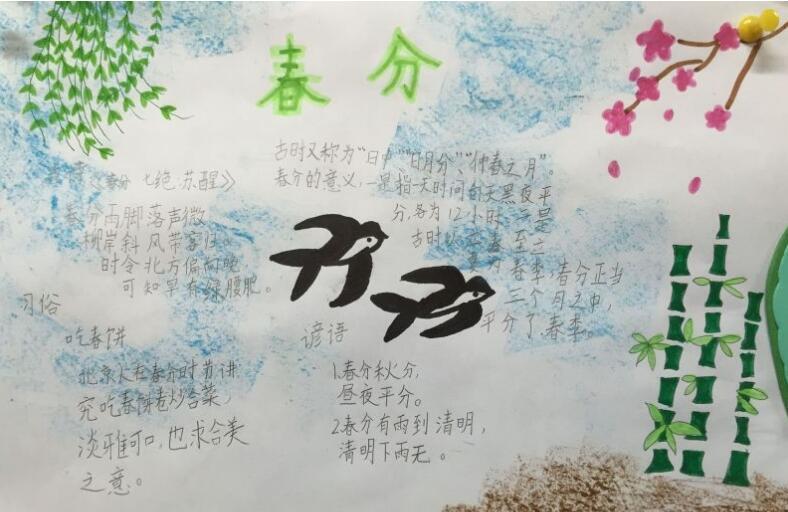 春分
古时又称为“日中”、“日月分”、“仲春之月”。
春分的意义，一是指一天时间白天黑夜平
分，各为12小时；二是
古时以立春至立
夏为春季，春分正当
三个月之中，
平分了春季。
《春分 七绝·苏醒》
春分雨脚落声微，
柳岸斜风带客归。
时令北方偏向晚，
可知早有绿腰肥。
习俗
吃春饼
北京人在春分时节讲
究吃春饼卷炒合菜，
淡雅可口，也求合美
之意。
谚语
1.春分秋分，
昼夜平分。
2.春分有雨到清明，
清明下雨无。